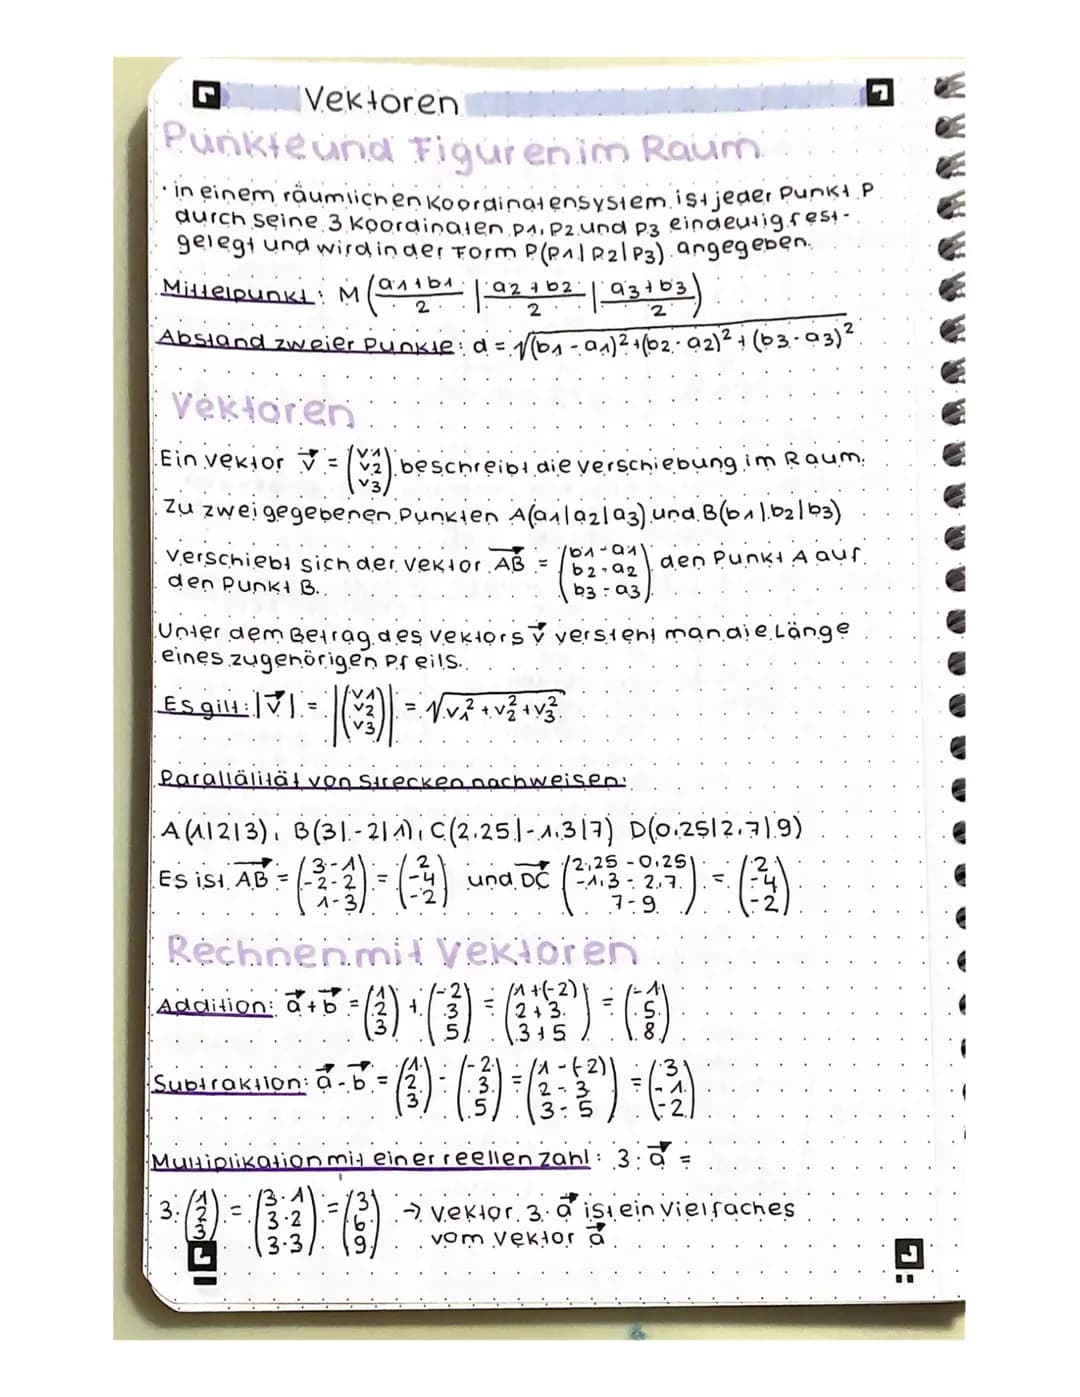 Vektoren
Punkte und Figuren im Raum
· in einem räumlichen Koordinatensystem ist jeder Punkt P
durch seine 3 Koordinaten p1, p2 und p3 eindeutig fest-
gelegt und wird in der Form P(p1|p2|p3) angegeben.
Mittelpunkt: M (a1+b1/2 | a2+b2/2 | a3+b3/2)
Abstand zweier Punkte: d = √(b1-a1)²+(b2-a2)²+(b3-a3)²
Vektoren
Ein Vektor v⃗ = (v1 v2 v3) beschreibt die Verschiebung im Raum.
Zu zwei gegebenen Punkten A(a1|a2|a3) und B(b1|b2|b3)
verschiebt sich der Vektor AB⃗ = (b1-a1 b2-a2 b3-a3) den Punkt A auf
den Punkt B.
Unter dem Betrag des Vektors v⃗ versteht man die Länge
eines zugehörigen Pfeils.
Es gilt: |v⃗| = |(v1 v2 v3)| = √v1²+v2²+v3²
Parallälität von Strecken nachweisen:
A(1|2|3), B(3|-2|1), C(2,25|-1,3|7) D(0,25|2,7|9)
Es ist AB⃗ = (3-1 -2-2 1-3) = (2 -4 -2) und DC⃗ (2,25-0,25 -1,3-2,7 7-9) = (2 -4 -2)
Rechnen mit Vektoren
Addition: a⃗+b⃗ = (1 2 3) + (-2 3 5) = (1+(-2) 2+3 3+5) = (-1 5 8)
Subtraktion: a⃗-b⃗ = (1 2 3) - (-2 3 5) = (1-(-2) 2-3 3-5) = (3 -1 -2)
Multiplikation mit einer reellen Zahl: 3·a⃗ =
3·(1 2 3) = (3·1 3·2 3·3) = (3 6 9) → Vektor 3·a⃗ ist ein Vielfaches
vom Vektor a⃗